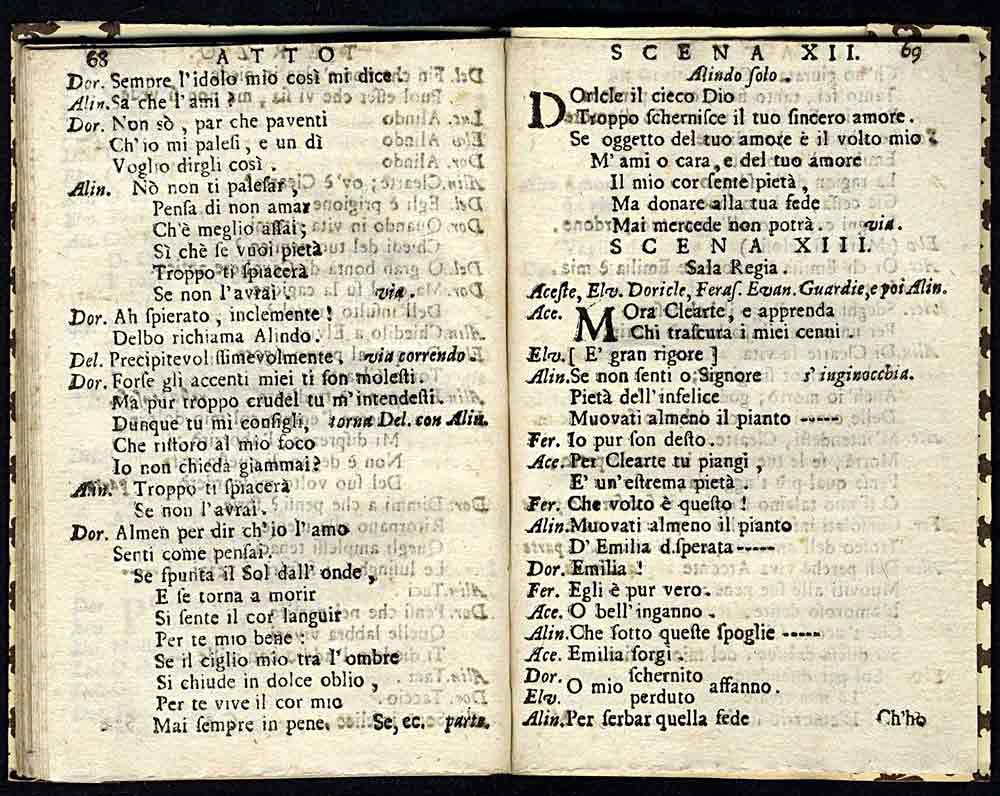 68 ATTO
Dor. Sempre l'idolo mio così mi dice.
Alin. Sa che l'ami?
Dor. Non sò, par che paventi
Ch'io mi palesi, e un dì
Voglio dirgli così.
Alin. Nò non ti palesar,
Pensa di non amar
Ch'è meglio assai;
Sì chè se vuoi pietà
Troppo ti spiacerà
Se non l'avrai. via.
Dor. Ah spierato, inclemente!
Delbo richiama Alindo.
Del. Precipitevol issimevolmente. via correndo.
Dor. Forse gli accenti miei ti son molesti.
Ma pur troppo crudel tu m'intendesti.
Dunque tu mi consigli, torna Del. con Alin.
Che ristoro al mio foco
Io non chieda giammai?
Alin. Troppo ti spiacerà
Se non l'avrai.
Dor. Almen per dir ch'io l'amo
Senti come pensai.
Se spunta il Sol dall'onde,
E se torna a morir
Si sente il cor languir
Per te mio bene:
Se il ciglio mio tra l'ombre
Si chiude in dolce oblio,
Per te vive il cor mio
Mai sempre in pene. Se, ec. parte.
SCENA XII. 69
Alindo solo.
DOricle il cieco Dio
Troppo schernisce il tuo sincero amore.
Se oggetto del tuo amore è il volto mio
M'ami o cara, e del tuo amore
Il mio cor sente pietà,
Ma donare alla tua fede
Mai mercede non potrà. via.
SCENA XIII.
Sala Regia.
Aceste, Elv. Doricle, Feras. Evan. Guardie, e poi Alin.
Ace. MOra Clearte, e apprenda
Chi trascura i miei cenni.
Elv. [ E' gran rigore ]
Alin. Se non senti o Signore s'inginocchia.
Pietà dell'infelice
Muovati almeno il pianto -----
Fer. Io pur son desto.
Ace. Per Clearte tu piangi,
E' un'estrema pietà.
Fer. Che volto è questo!
Alin. Muovati almeno il pianto
D' Emilia d.sperata -----
Dor. Emilia!
Fer. Egli è pur vero.
Ace. O bell'inganno.
Alin. Che sotto queste spoglie -----
Ace. Emilia sorgi.
Dor. schernito
O mio affanno.
Elv. perduto
Alin. Per serbar quella fede Ch'hò